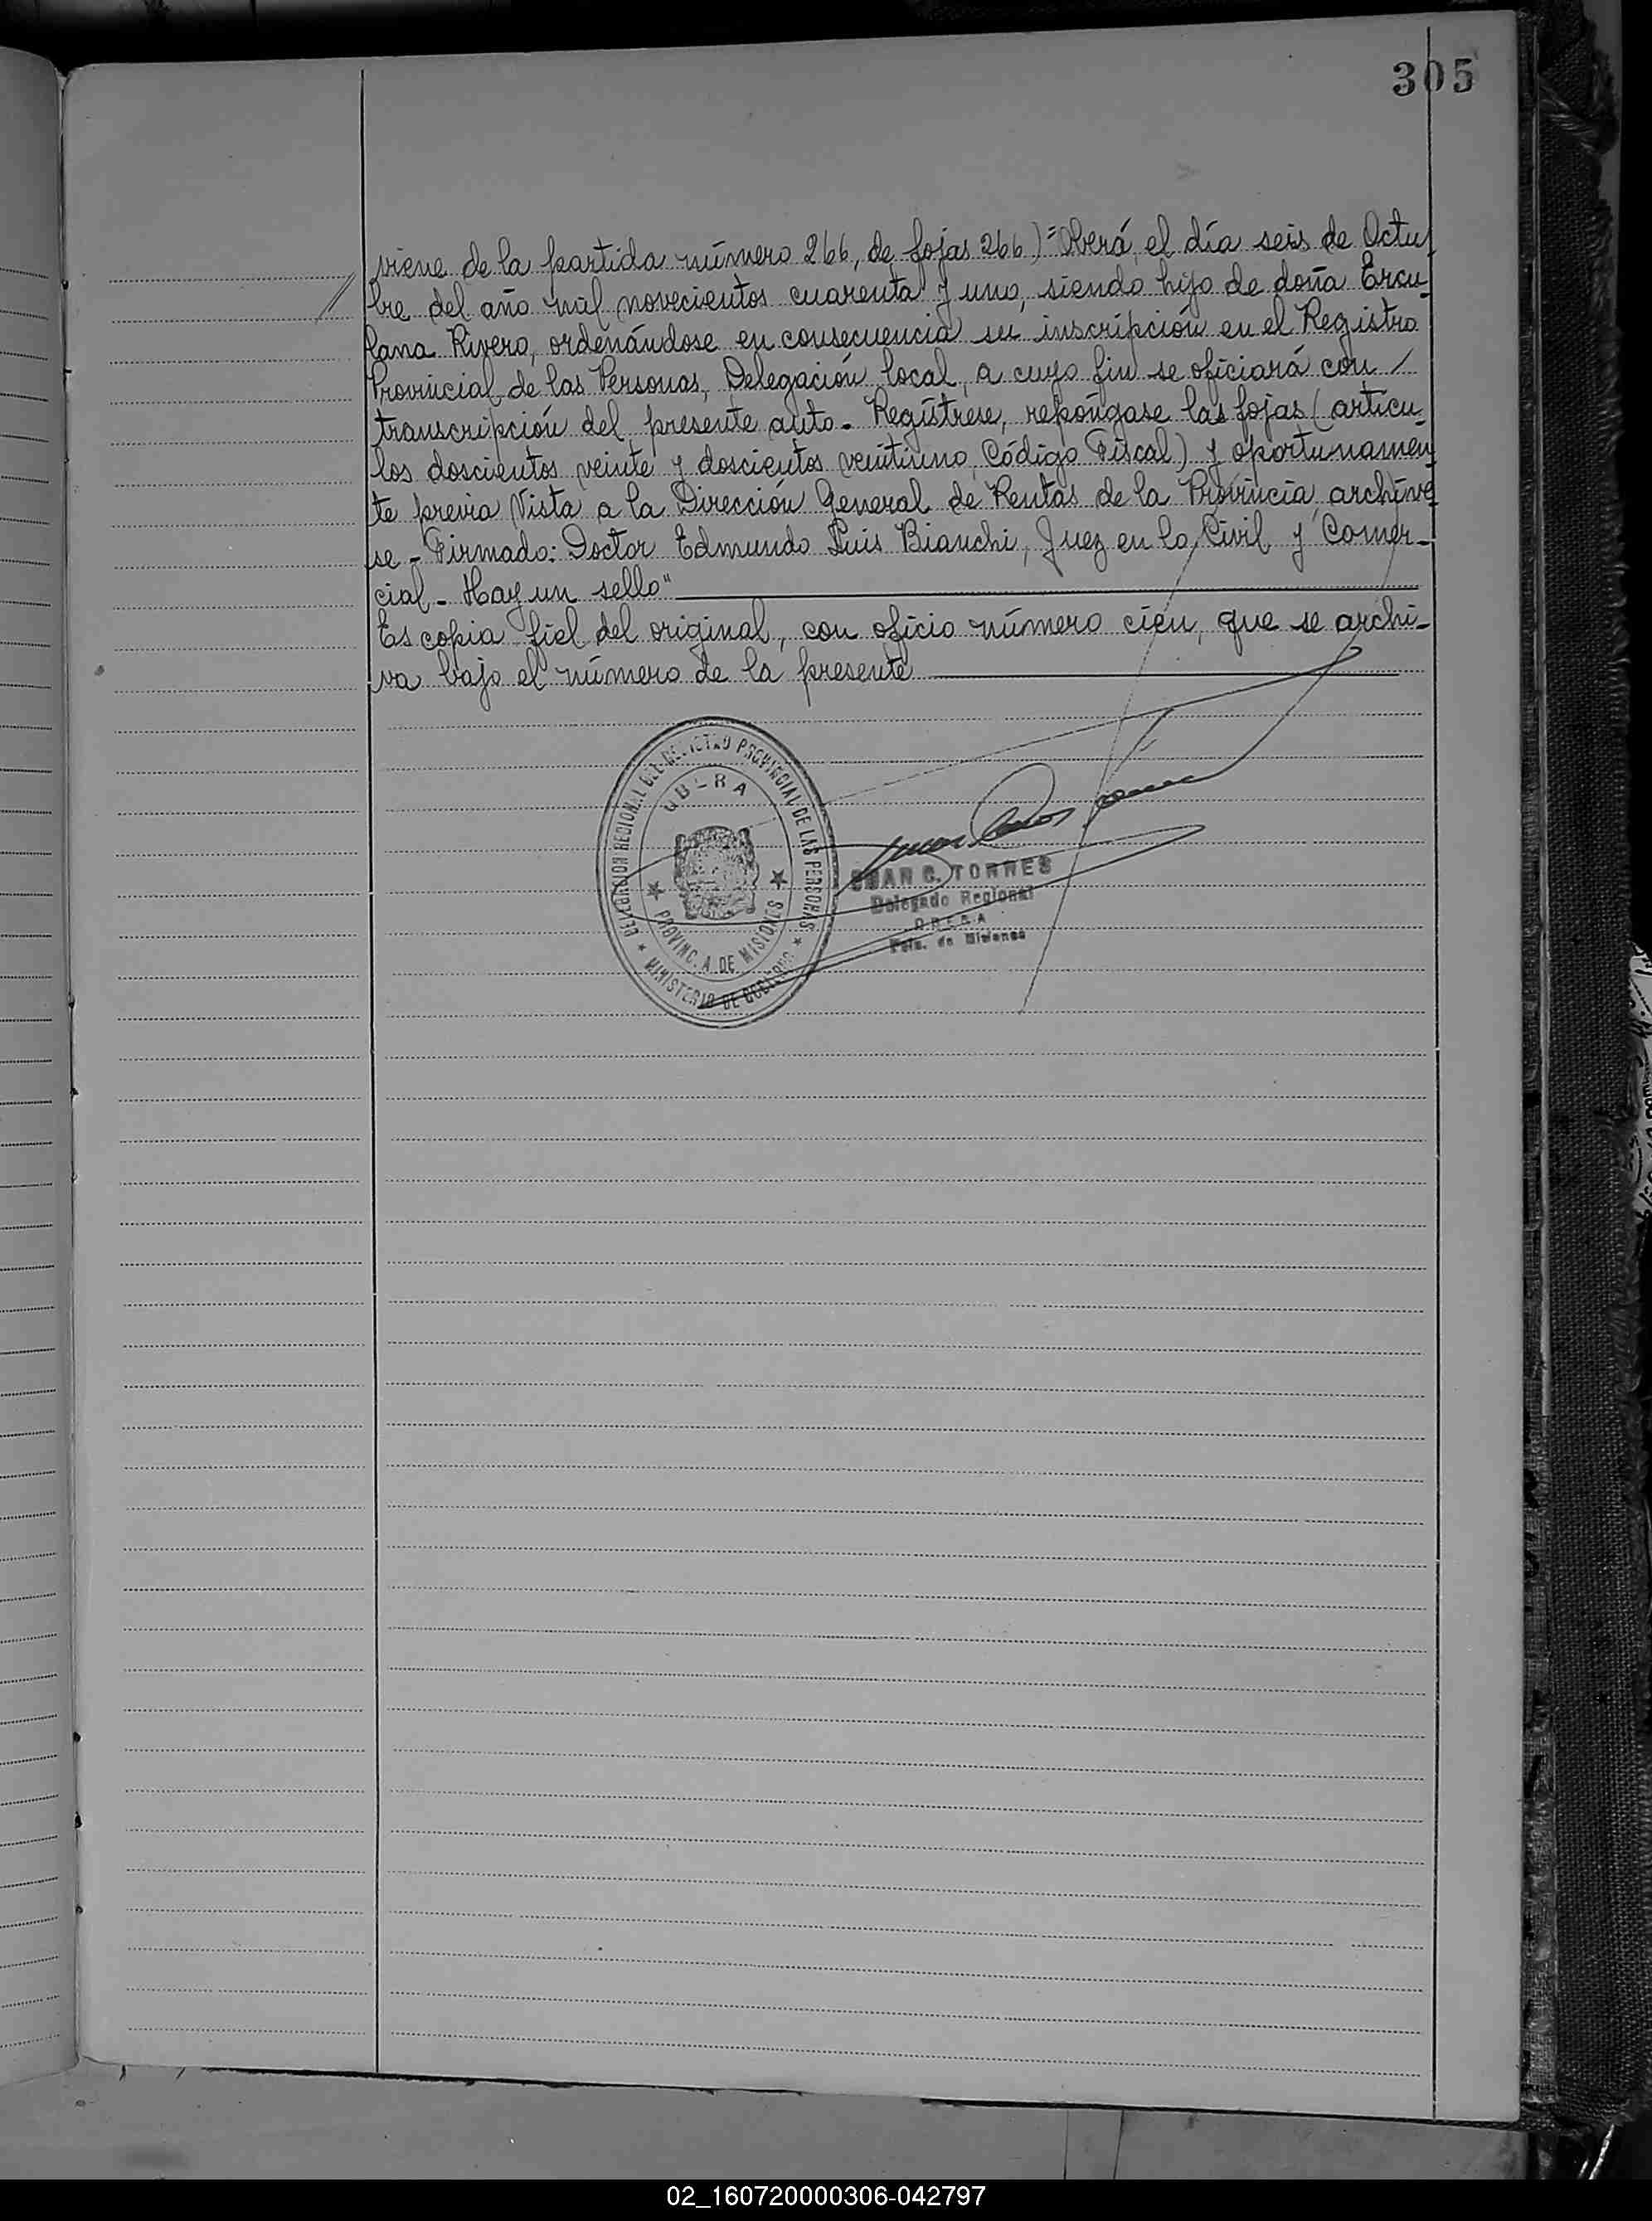 305
viene de la partida número 266, de fojas 266)=Oberá, el día seis de Octu
bre del año mil novecientos cuarenta y uno, siendo hijo de doña Ercu-
lana Rivero, ordenándose en consecuencia su inscripción en el Registro
Provincial de las Personas, Delegación local, a cuyo fin se oficiará con /
transcripción del presente auto.- Regístrese, repóngase las fojas (artícu
los doscientos veinte y doscientos veintiuno, Código Fiscal) y oportunamen
te previa Vista a la Dirección General de Rentas de la Provincia, archíve
se - Firmado: Doctor Edmundo Luis Bianchi, Juez en lo Civil y Comer-
cial - Hay un sello"
Es copia fiel del original, con oficio número cien, que se archi-
va bajo el número de la presente
DELEGACION REGIONAL DEL REGISTRO PROVINCIAL DE LAS PERSONAS
OBERA
PROVINCIA DE MISIONES
MINISTERIO DE GOBIERNO
JUAN C. TORRES
Delegado Regional
OBERA
Pcia. de Misiones
02_160720000306-042797